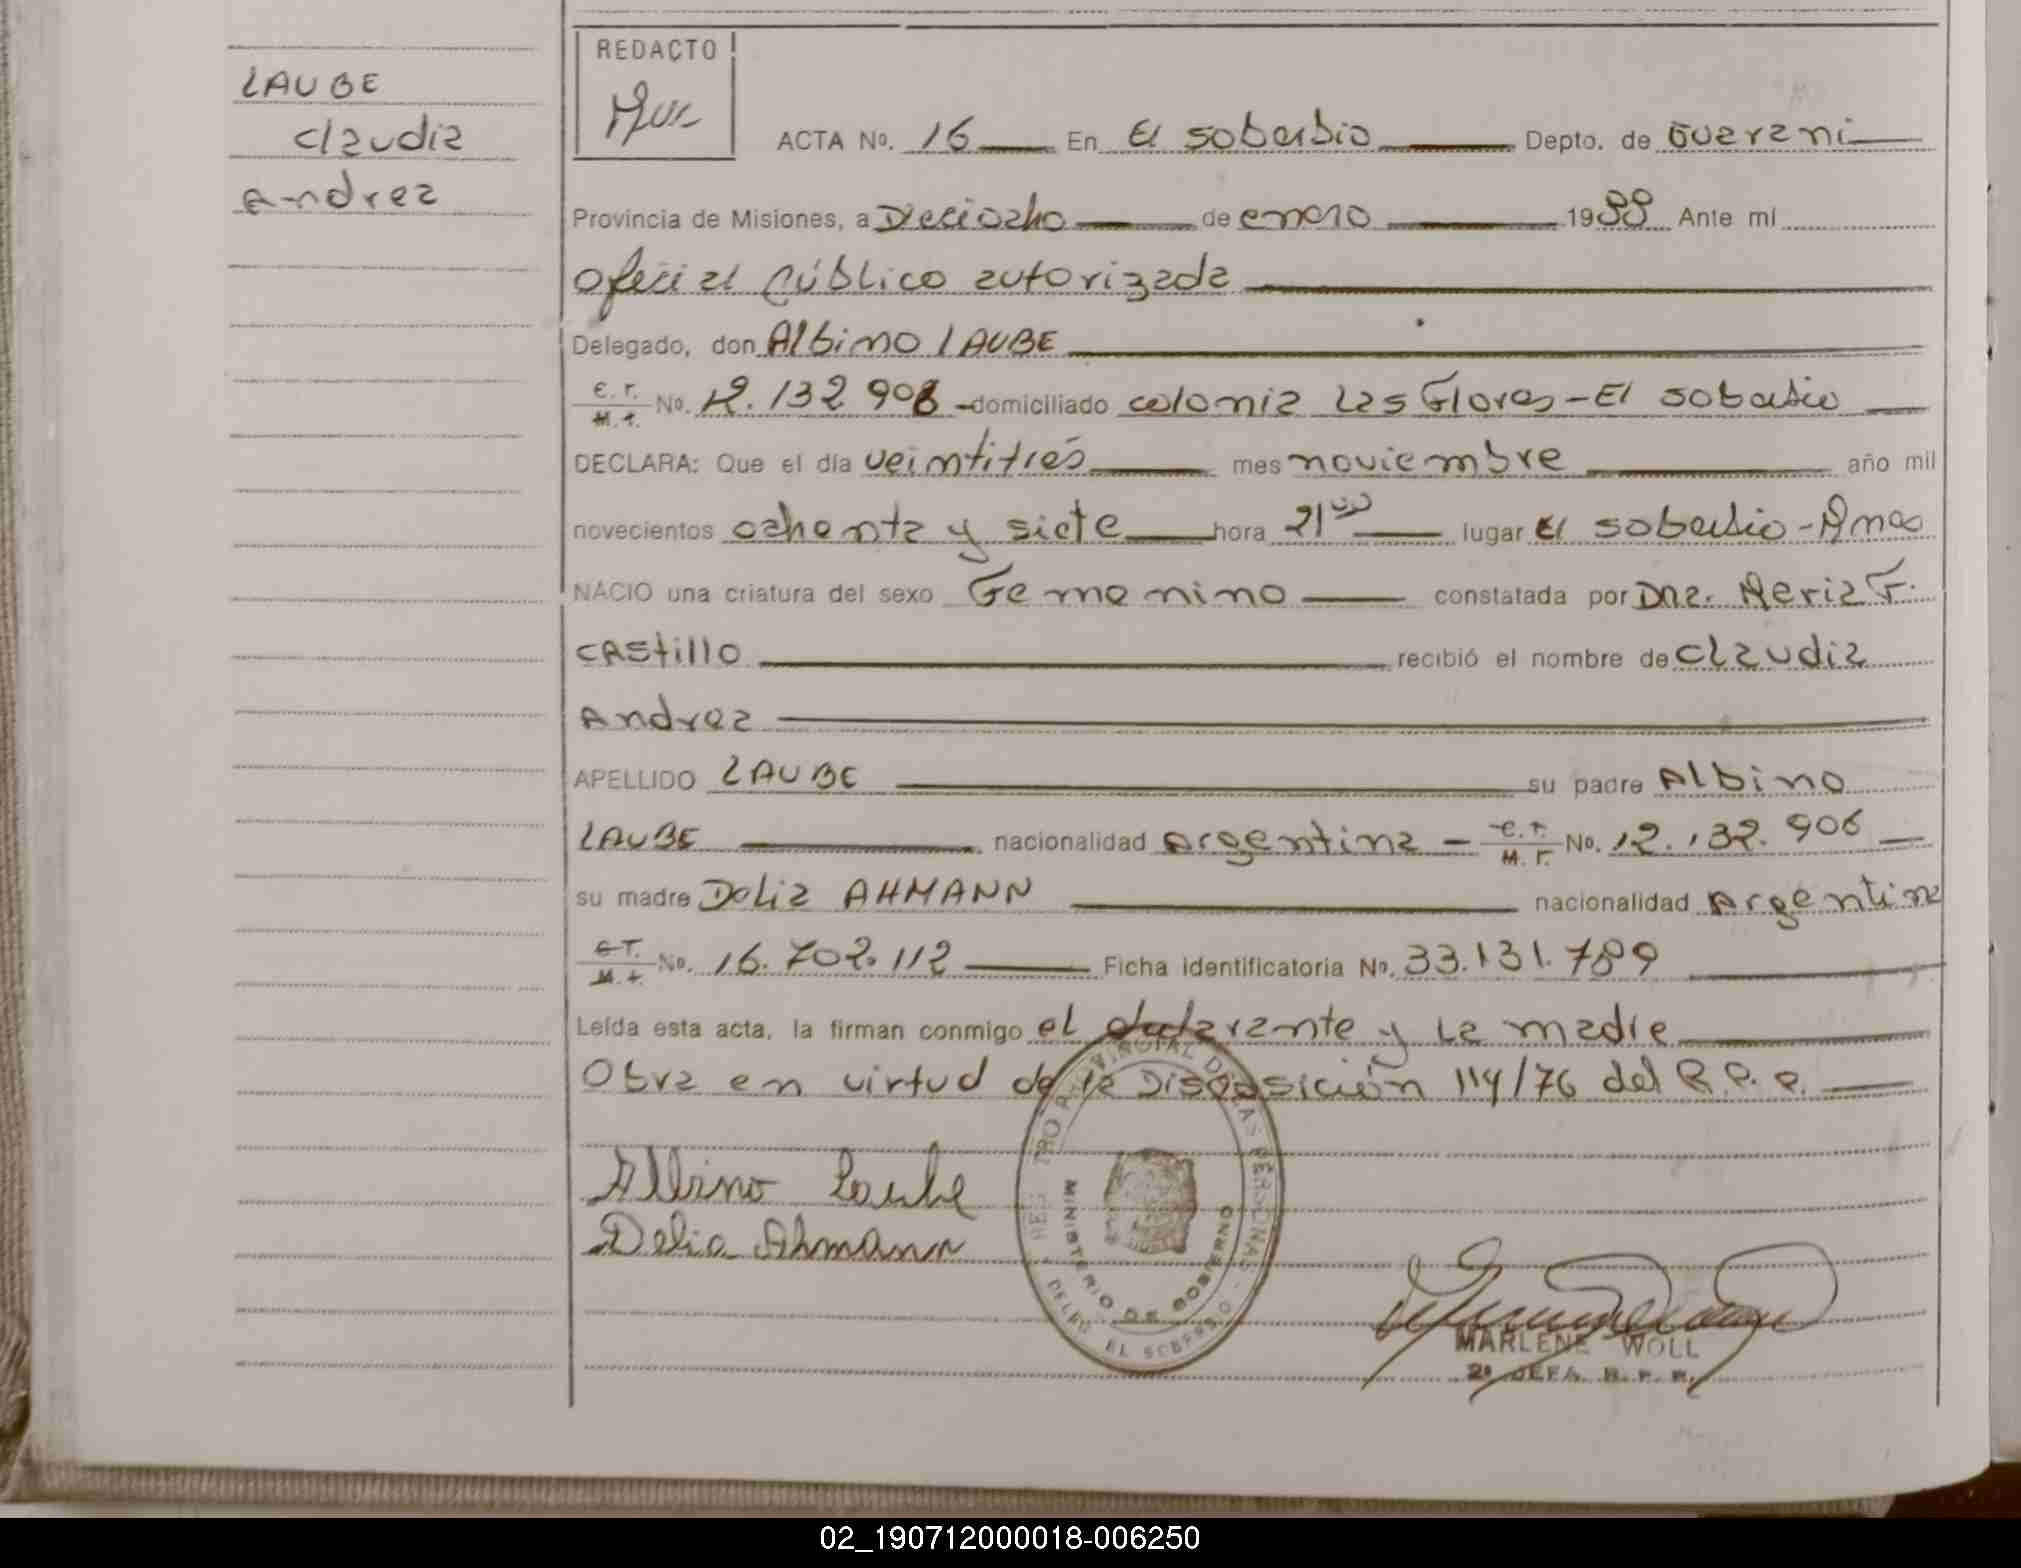 LAUBE
Claudia
Andrea
REDACTO
ACTA No. 16 En El Soberbio Depto. de Guarani
Provincia de Misiones, a Dieciocho de enero 1988 Ante mi
Oficial Público autorizada
Delegado, don Albino LAUBE
C.I. M.I. No. 12.132 906 domiciliado colonia Las Flores - El Soberbio
DECLARA: Que el día veintitrés mes noviembre año mil
novecientos ochenta y siete hora 21 00 lugar El Soberbio - Mnes
NACIO una criatura del sexo Femenino constatada por Dña. Maria F.
Castillo recibió el nombre de Claudia
Andrea
APELLIDO LAUBE su padre Albino
LAUBE nacionalidad Argentina - C.I. M.I. No. 12.132.906
su madre Delia AHMANN nacionalidad Argentina
C.I. M.I. No. 16.702.112 Ficha identificatoria No. 33.131.789
Leída esta acta, la firman conmigo el declarante y la madre
Obra en virtud de la Disposición 114/76 del R.P.P.
Albino Laube
Delia Ahmann
REGISTRO PROVINCIAL DE LAS PERSONAS
MINISTERIO DE GOBIERNO
DELEG. EL SOBERBIO
MARLENE WOLL
2º JEFA R. P. P.
02_190712000018-006250